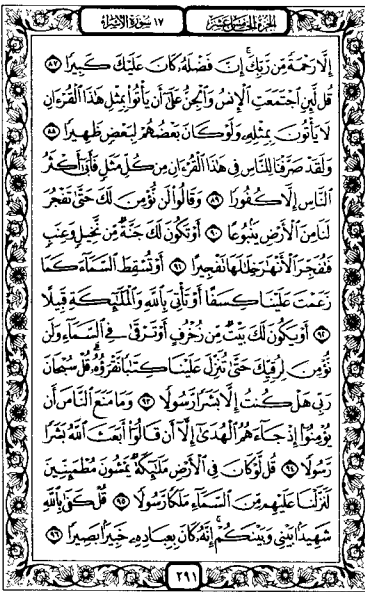 الجزء الخامس عشر ١٧ سورة الإسراء
إِلَّا رَحْمَةً مِّن رَّبِّكَ ۚ إِنَّ فَضْلَهُۥ كَانَ عَلَيْكَ كَبِيرًا ٨٧
قُل لَّئِنِ ٱجْتَمَعَتِ ٱلْإِنسُ وَٱلْجِنُّ عَلَىٰٓ أَن يَأْتُوا۟ بِمِثْلِ هَٰذَا ٱلْقُرْءَانِ
لَا يَأْتُونَ بِمِثْلِهِۦ وَلَوْ كَانَ بَعْضُهُمْ لِبَعْضٍ ظَهِيرًا ٨٨
وَلَقَدْ صَرَّفْنَا لِلنَّاسِ فِى هَٰذَا ٱلْقُرْءَانِ مِن كُلِّ مَثَلٍ فَأَبَىٰٓ أَكْثَرُ
ٱلنَّاسِ إِلَّا كُفُورًا ٨٩ وَقَالُوا۟ لَن نُّؤْمِنَ لَكَ حَتَّىٰ تَفْجُرَ
لَنَا مِنَ ٱلْأَرْضِ يَنۢبُوعًا ٩٠ أَوْ تَكُونَ لَكَ جَنَّةٌ مِّن نَّخِيلٍ وَعِنَبٍ
فَتُفَجِّرَ ٱلْأَنْهَٰرَ خِلَٰلَهَا تَفْجِيرًا ٩١ أَوْ تُسْقِطَ ٱلسَّمَآءَ كَمَا
زَعَمْتَ عَلَيْنَا كِسَفًا أَوْ تَأْتِىَ بِٱللَّهِ وَٱلْمَلَٰٓئِكَةِ قَبِيلًا
٩٢ أَوْ يَكُونَ لَكَ بَيْتٌ مِّن زُخْرُفٍ أَوْ تَرْقَىٰ فِى ٱلسَّمَآءِ وَلَن
نُّؤْمِنَ لِرُقِيِّكَ حَتَّىٰ تُنَزِّلَ عَلَيْنَا كِتَٰبًا نَّقْرَؤُهُۥ ۗ قُلْ سُبْحَانَ
رَبِّى هَلْ كُنتُ إِلَّا بَشَرًا رَّسُولًا ٩٣ وَمَا مَنَعَ ٱلنَّاسَ أَن
يُؤْمِنُوٓا۟ إِذْ جَآءَهُمُ ٱلْهُدَىٰٓ إِلَّآ أَن قَالُوٓا۟ أَبَعَثَ ٱللَّهُ بَشَرًا
رَّسُولًا ٩٤ قُل لَّوْ كَانَ فِى ٱلْأَرْضِ مَلَٰٓئِكَةٌ يَمْشُونَ مُطْمَئِنِّينَ
لَنَزَّلْنَا عَلَيْهِم مِّنَ ٱلسَّمَآءِ مَلَكًا رَّسُولًا ٩٥ قُلْ كَفَىٰ بِٱللَّهِ
شَهِيدًۢا بَيْنِى وَبَيْنَكُمْ ۚ إِنَّهُۥ كَانَ بِعِبَادِهِۦ خَبِيرًۢا بَصِيرًا ٩٦
٢٩١